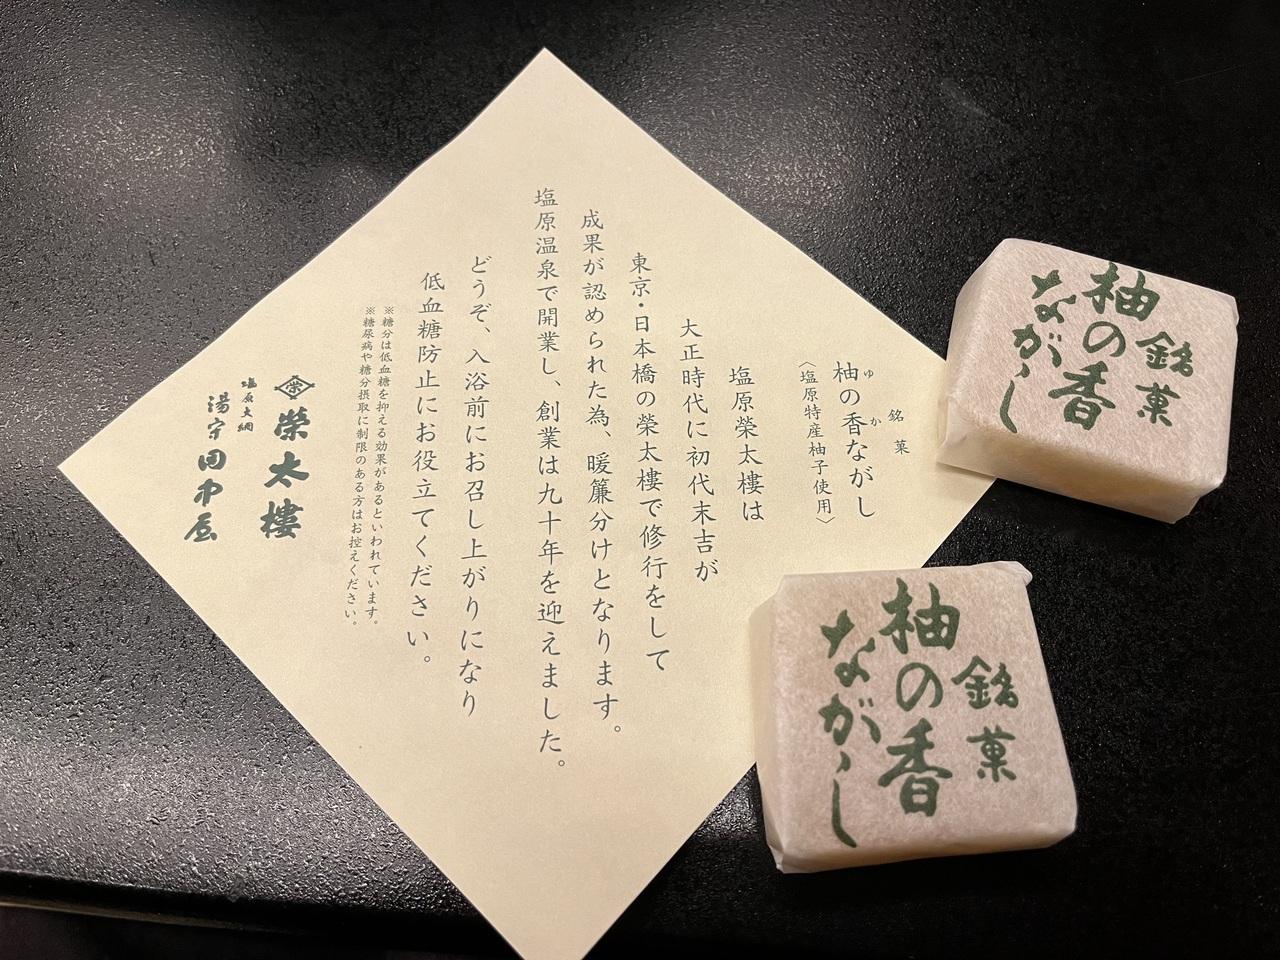 銘菓
柚の香ながし
ゆ
か
〈塩原特産柚子使用〉
塩原榮太樓は
大正時代に初代末吉が
東京・日本橋の榮太樓で修行をして
成果が認められた為、暖簾分けとなります。
塩原温泉で開業し、創業は九十年を迎えました。
どうぞ、入浴前にお召し上がりになり
低血糖防止にお役立てください。
※糖分は低血糖を抑える効果があるといわれています。
※糖尿病や糖分摂取に制限のある方はお控えください。
榮
榮太樓
塩原大網
湯守田中屋
銘菓
柚の香
ながし
銘菓
柚の香
ながし